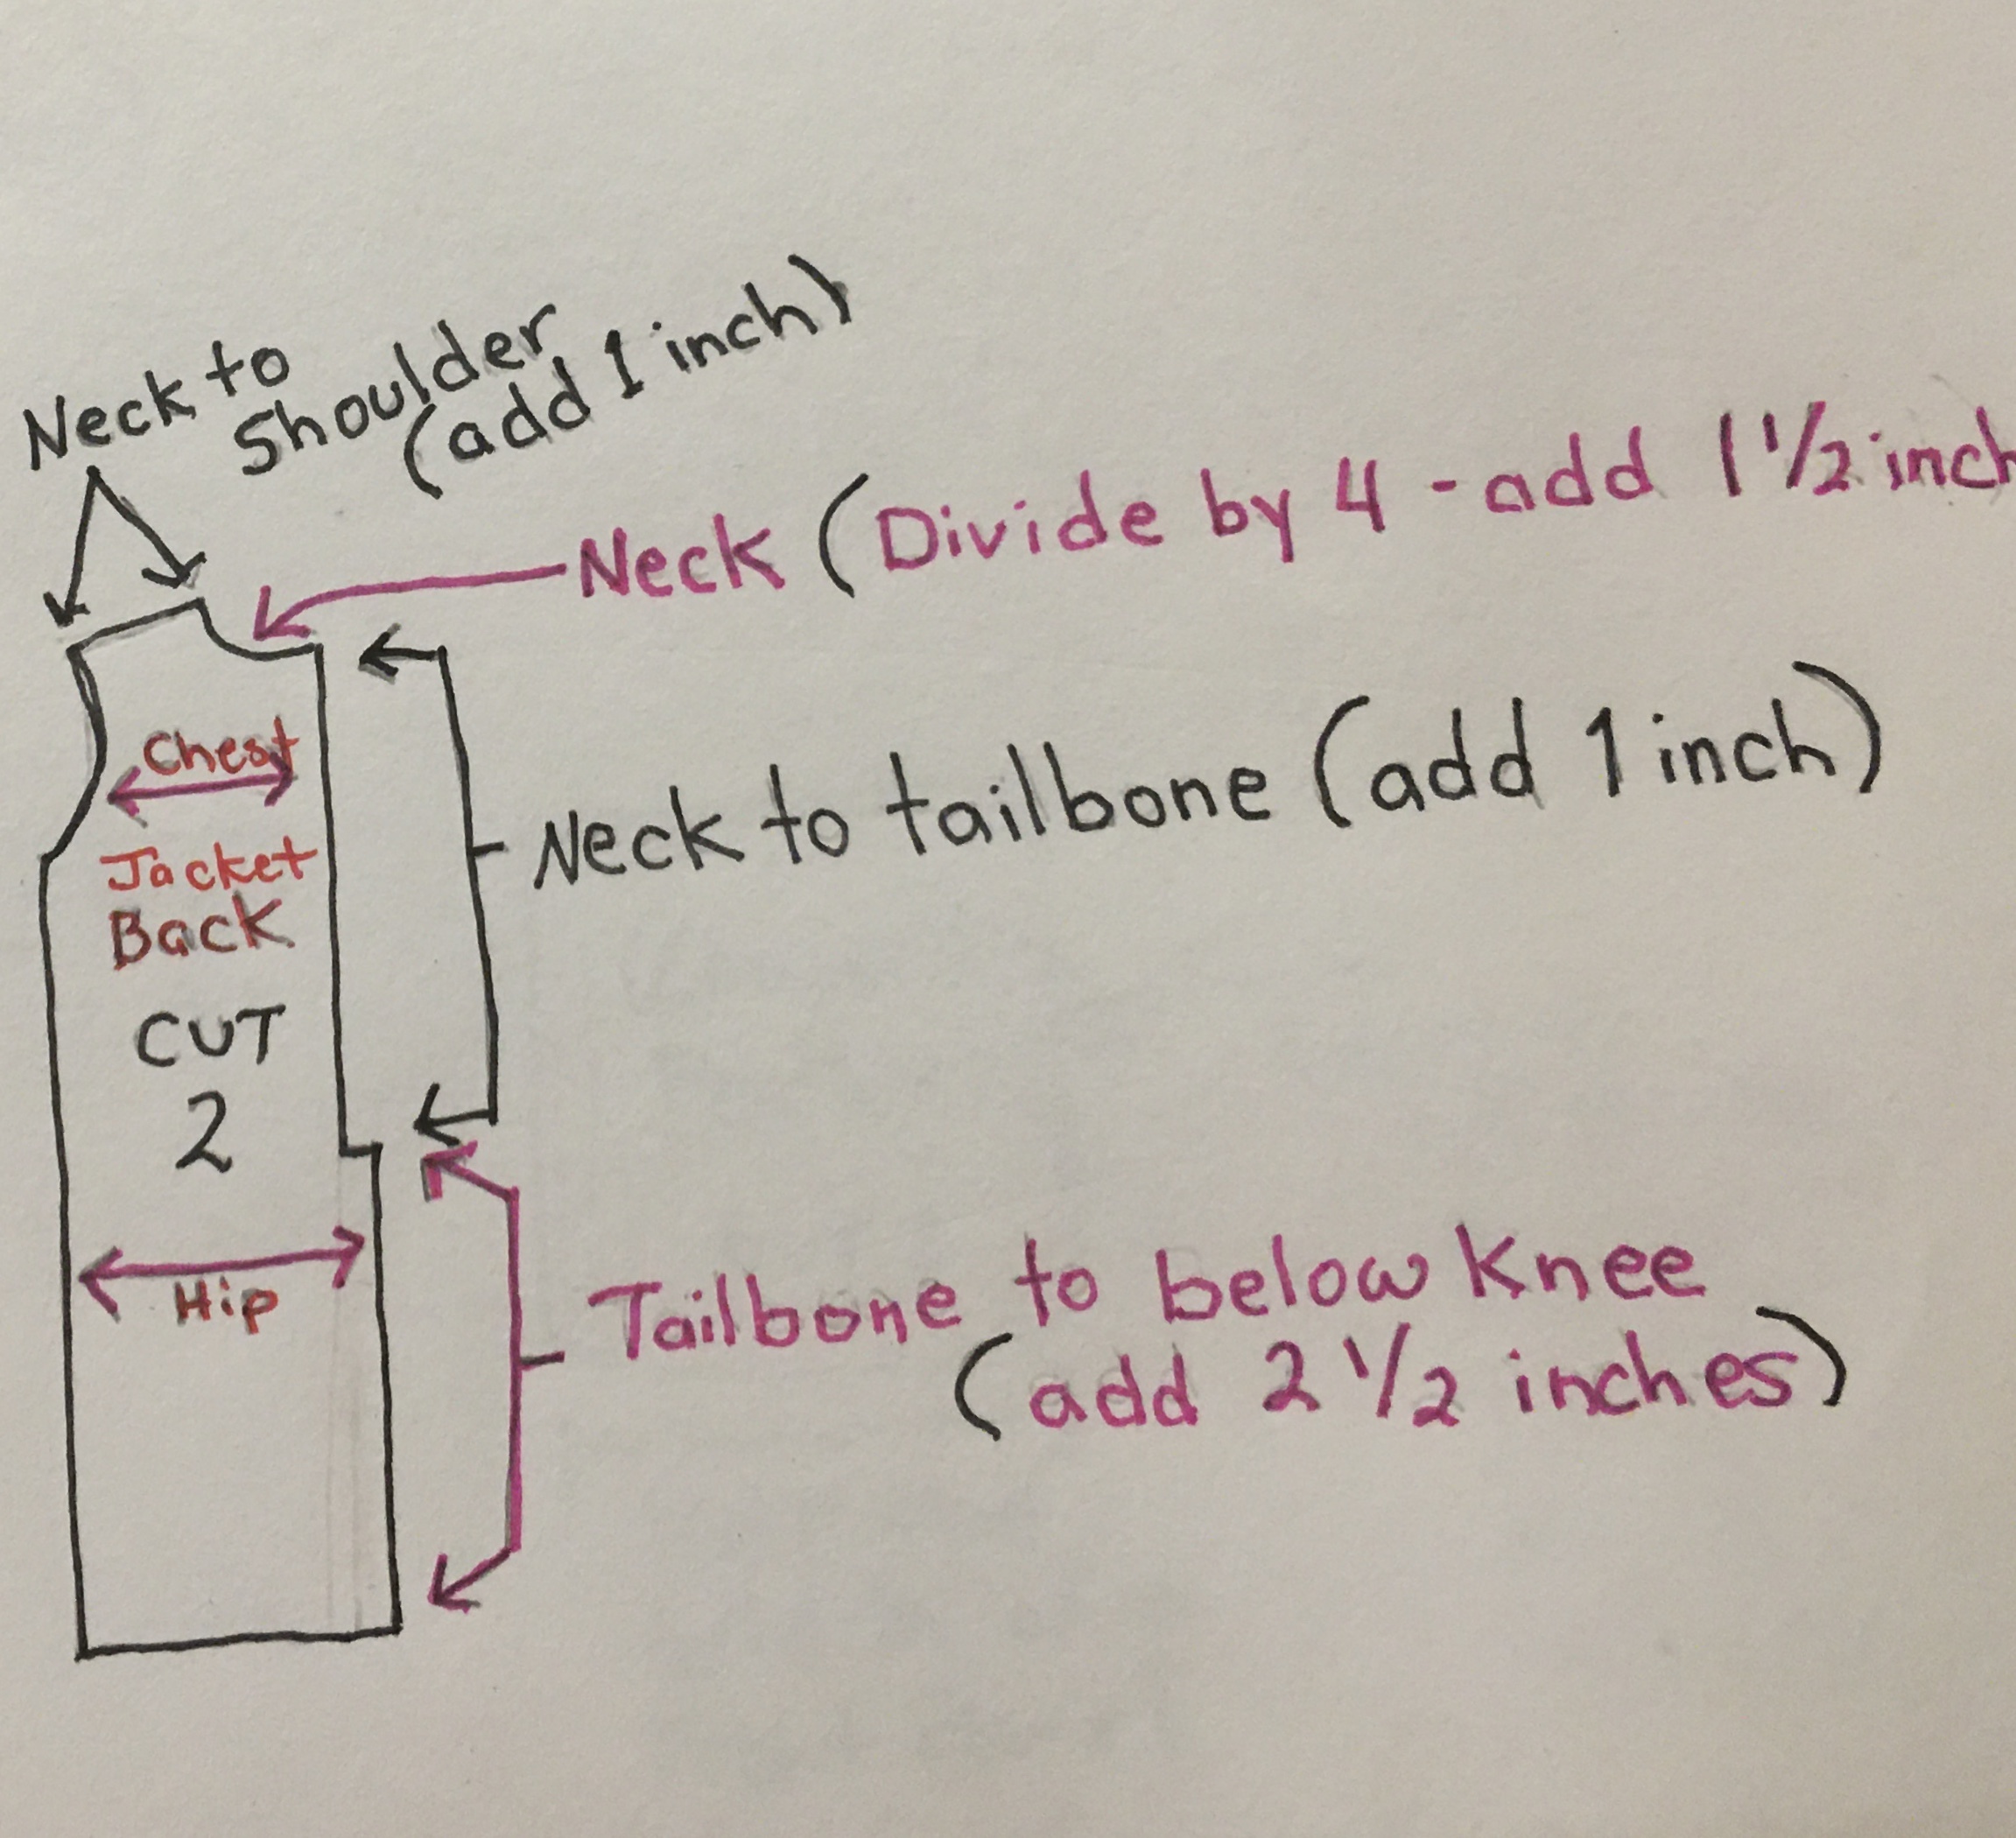 Neck to
Shoulder
(add 1 inch)
Neck (Divide by 4 - add 1 1/2 inch
Chest
Neck to tailbone (add 1 inch)
Jacket
Back
CUT
2
Hip
Tailbone to below Knee
(add 2 1/2 inches)